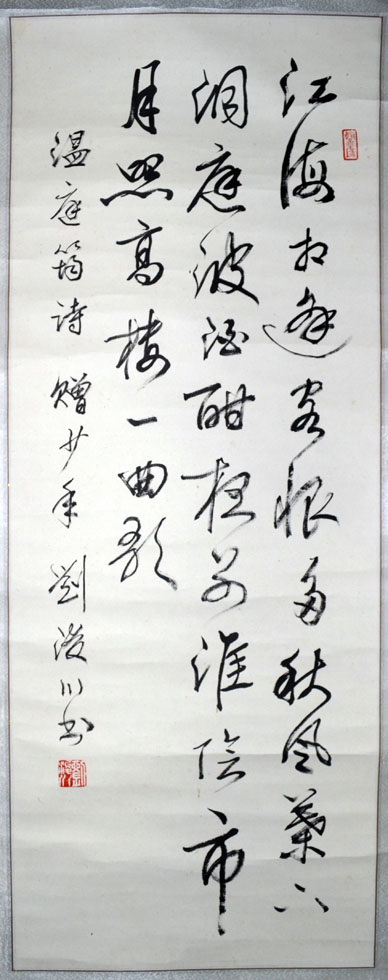 江海相逢客恨多秋风葉下
洞庭波酒酣夜别淮阴市
月照高楼一曲歌
温庭筠诗 赠少年 劉浚川书